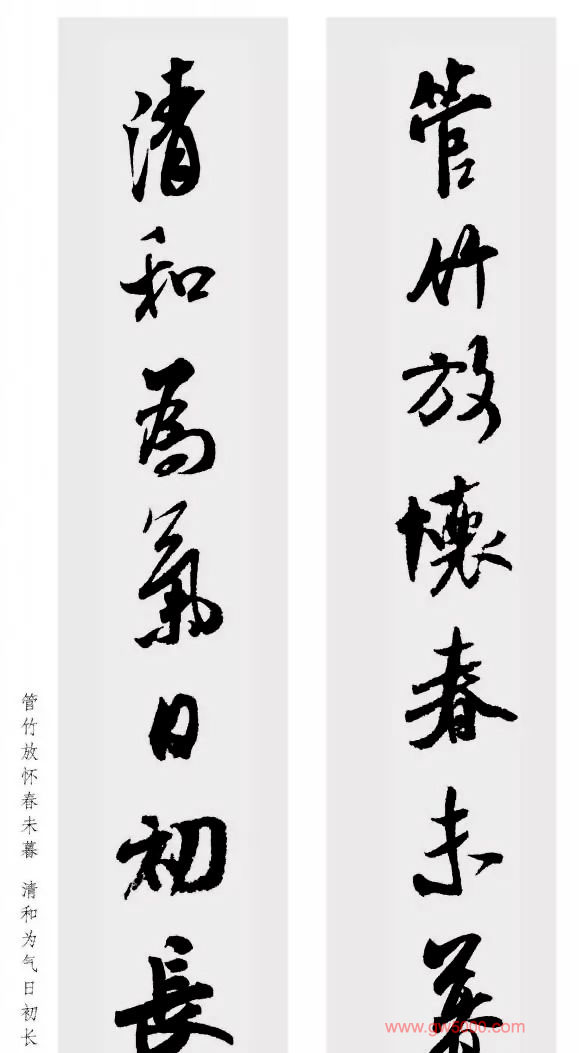 管竹放懷春未暮
清和為氣日初長
管竹放怀春未暮 清和为气日初长
www.gw5000.com